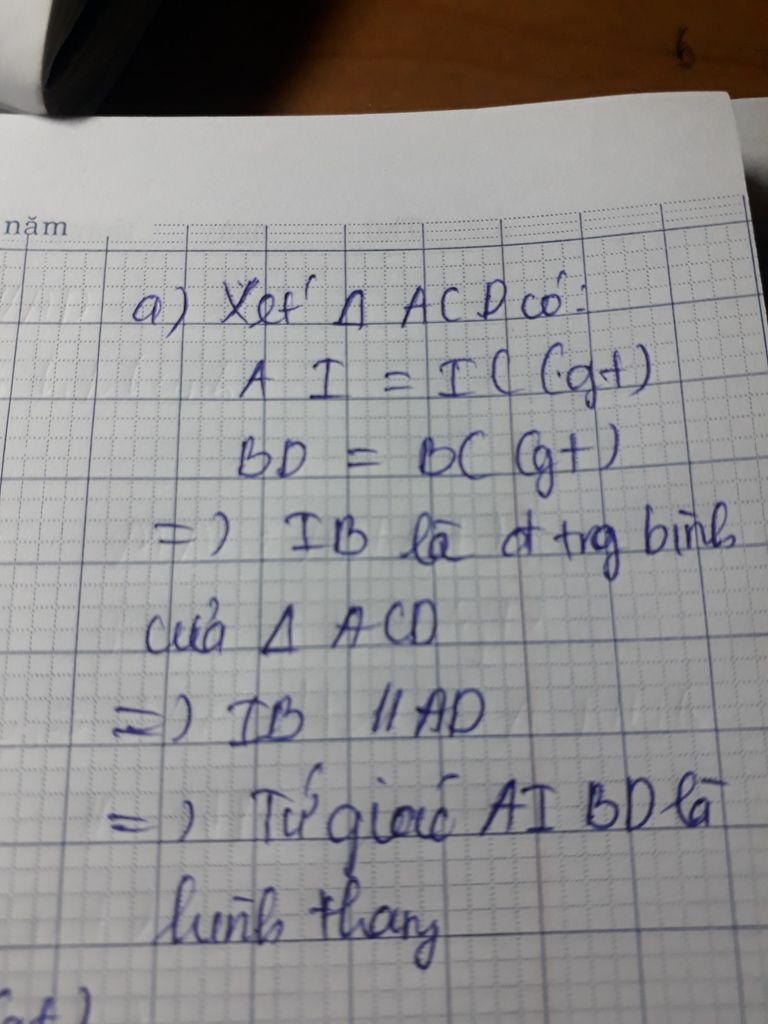 năm
a) Xét Δ ACD có:
A I = I C (gt)
BD = BC (gt)
=) IB là đ trg bình
của Δ ACD
=) IB // AD
=) Tứ giác AI BD là
hình thang
(gt)